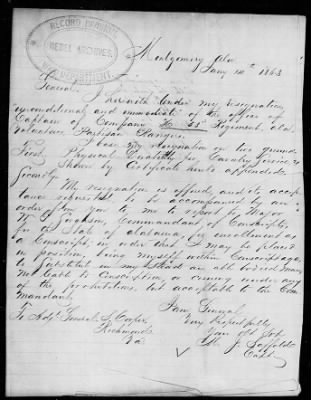 RECORD DIVISION
REBEL ARCHIVES
WAR DEPARTMENT
Montgomery Ala
Jany 12th 1863
General
I herewith tender my resignation,
unconditional and immediate of the office of
Captain of Company H, 51st Regiment, Ala
Volunteer Partisan Rangers
I base my resignation on two grounds
First, Physical Disability for Cavalry Service, as
Shown by Certificate hereto appended.
Secondly
My resignation is offered, and its accep-
tance requested to be accompanied by an
order from you to me to report to Major
W. G. Swanson, Commandant of Conscripts,
for the State of Alabama, for enrollment as
a Conscript; in order that I may be placed
in position, being myself within Conscript age,
to substitute in my stead an able bodied man,
not liable to Conscription, or coming under any
of the prohibitions, but acceptable to the Com
Mandant
I am General
Very Respectfully
Your Obt Sevt
M. J. Saffold
Capt
To Adjt General S. Cooper
Richmond
Va